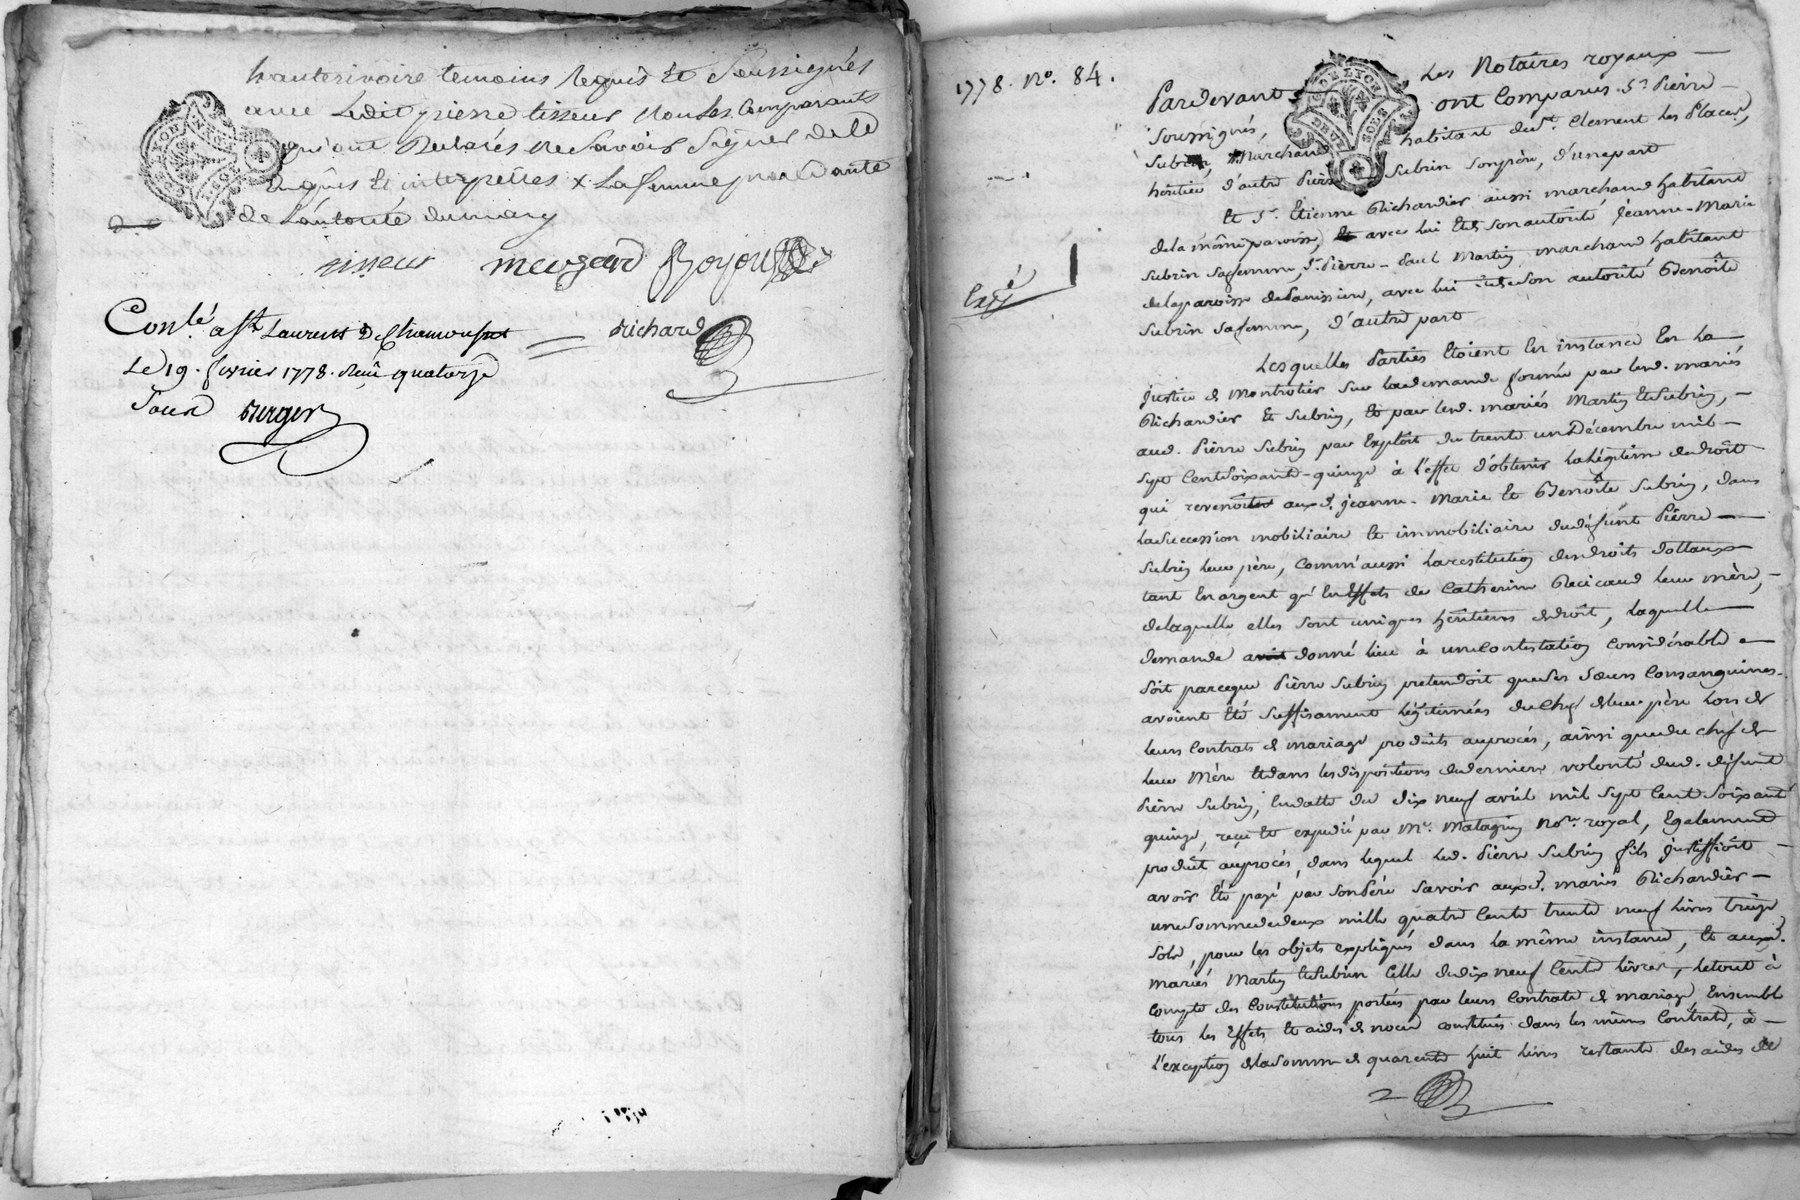 hauterivoire temoins Requis Et Soussignés
avec Ledit pierre tisseur Non Les Comparants
qui ont Declarés ne Savoir Signer de ce
Enquis Et interpellés x La femme procedante
de L'autorité du mary
tisseur
Conlé. a St. Laurent De Chamousset
Richard
Le 19. fevrier 1778. Reçu quatorze
Sous Berger
1778. No. 84.
Pardevant Les Notaires royaux
Soussignés, ont Comparus Sr. Pierre
Subrin, Marchand habitant du St. Clement Les Places,
héritier d'autre Pierre Subrin Son père, d'une part
Et Sr. Etienne Richardier aussi marchand habitant
de la même paroisse, et avec lui Et de Son autorité Jeanne-Marie
Subrin Sa femme, Sr. Pierre-Paul Martin marchand habitant
de la paroisse de Panissiere, avec lui Et de Son autorité Benoîte
Subrin Sa femme, d'autre part
Expé
Lesquelles Parties Etoient En instance En La
Justice de Montrotier Sur La demande formée par Les d. mariés
Richardier Et Subrin, Et par Les d. mariés Martin Et Subrin,
aud. Pierre Subrin par Exploit du trente un Décembre mil
Sept Cent Soixante-quinze à l'effet d'obtenir La Légitime de droit
qui revenoit aux d. Jeanne-Marie Et Benoîte Subrin, dans
La Succession mobiliaire Et immobiliaire du défunt Pierre
Subrin Leur père, Comm'aussi La restitution des droits Dottaux
tant En argent qu'En Effets de Catherine Leur Mère,
de Laquelle elles Sont uniques héritieres de droit, Laquelle
demande avoit donné Lieu à une Contestation Considérable
Soit parceque Pierre Subrin prétendoit que Ses Sœurs Consanguines
avoient Eté Suffisament Légitimées du Chef de Leur père Lors de
Leurs Contrats de mariage produits au procès, ainsi que du chef de
Leur Mère Et dans Les dispositions de derniere volonté dud. défunt
Pierre Subrin, En datte du dix neuf avril mil Sept Cent Soixante
quinze, reçu Et expedié par Me. Matagrin Nore. royal, Egalement
produit au procès, dans Lequel Led. Pierre Subrin fils Justiffioit
avoir Eté payé par Son Père Savoir aux d. mariés Richardier
une Somme de deux mille quatre Cents trente neuf Livres treize
Sols, pour Les objets expliqués dans La même instance, Et aux d.
mariés Martin Et Subrin Celle de dix neuf Cents Livres, Le tout à
Compte des Constitutions portées par Leurs Contrats de mariage, Ensemble
tous Les Effets Et aides de noces constitués dans Les mêmes Contrats, à
L'exception de La Somme de quarente huit Livres restante des aides de